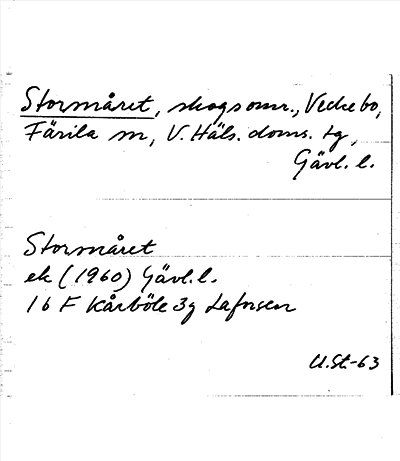 Stormåret, skogsomr., Veckebo,
Färila sn, V. Häls. doms. tg,
Gävl. l.
Stormåret
ek (1960) Gävl. l.
16 F Kårböle 3g Laforsen
U.St.-63